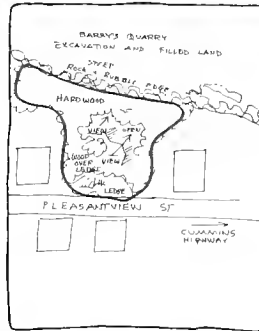 BARRY'S QUARRY
EXCAVATION AND FILLED LAND
STEEP
ROCK & RUBBLE EDGE
HARDWOOD
VIEW
OPEN
WOOD
OVER
LEDGE
VIEW
LEDGE
PLEASANTVIEW ST
CUMMINS
HIGHWAY